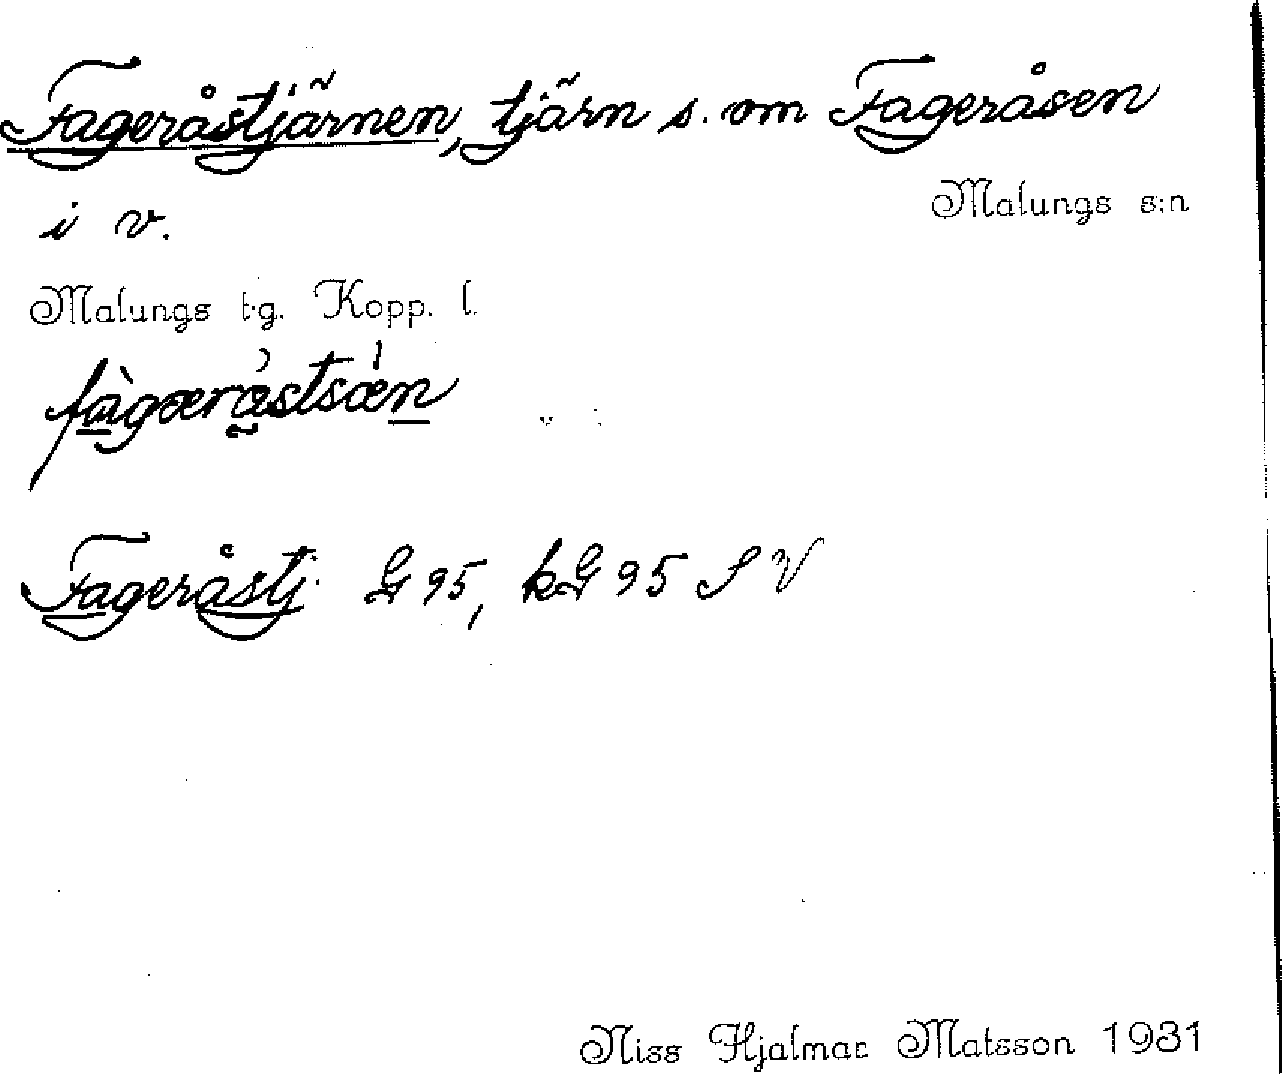 Fageråstjärnen, tjärn s. om Fageråsen
i v.
Malungs s:n
Malungs t.g. Kopp. l.
fàgæråstsæn
Fageråstj. G 95, kG 95 S V
Niss Hjalmar Matsson 1931